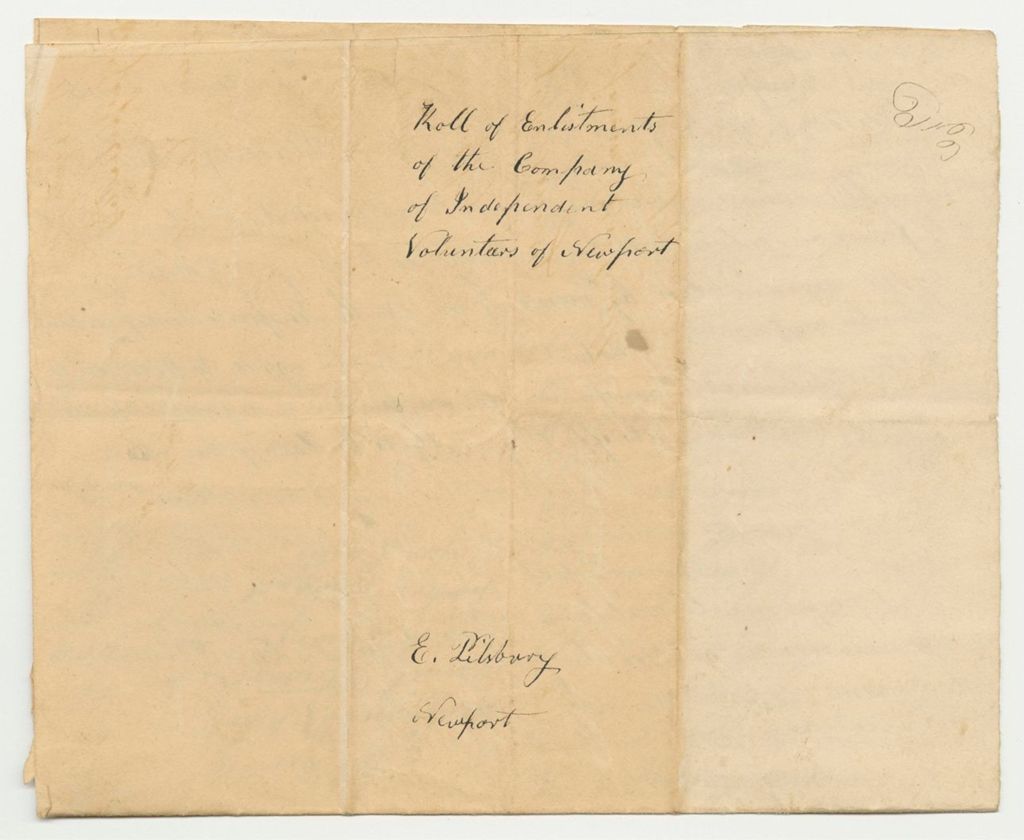 Roll of Enlistments
of the Company
of Independent
Volunteers of Newport
E. Pilsbury
Newport